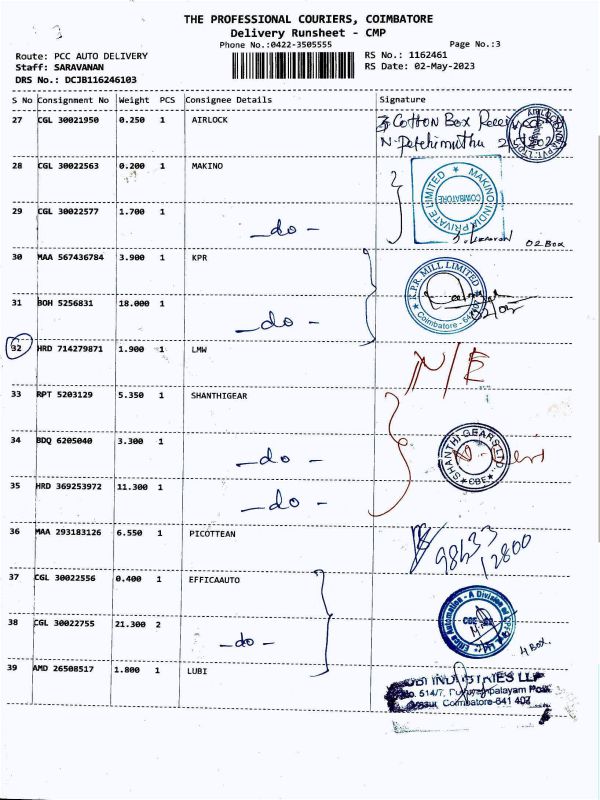 THE PROFESSIONAL COURIERS, COIMBATORE
Delivery Runsheet - CMP
Phone No.:0422-3505555
Page No.:3
Route: PCC AUTO DELIVERY
RS No.: 1162461
Staff: SARAVANAN
RS Date: 02-May-2023
DRS No.: DCJB116246103
S No Consignment No Weight PCS Consignee Details Signature
27 CGL 30021950 0.250 1 AIRLOCK
Cotton Box
28 CGL 30022563 0.200 1 MAKINO
MAKINO INDIA PRIVATE LIMITED
COIMBATORE
29 CGL 30022577 1.700 1 -do-
02 Box
30 MAA 567436784 3.900 1 KPR
K.P.R. MILL LIMITED
Coimbatore
31 BOH 5256831 18.000 1 -do-
32 HRD 714279871 1.900 1 LMW N/E
33 RPT 5203129 5.350 1 SHANTHIGEAR
34 BDQ 6205040 3.300 1 -do-
SHANTHI GEARS LTD.
CBE
35 HRD 369253972 11.300 1 -do-
36 MAA 293183126 6.550 1 PICOTTEAN
12800
37 CGL 30022556 0.400 1 EFFICAAUTO
Effica Automation - A Division of
38 CGL 30022755 21.300 2 -do-
4 Box.
39 AMD 26508517 1.800 1 LUBI
INDUSTRIES LLP
No. 514/7,
Coimbatore-641 407